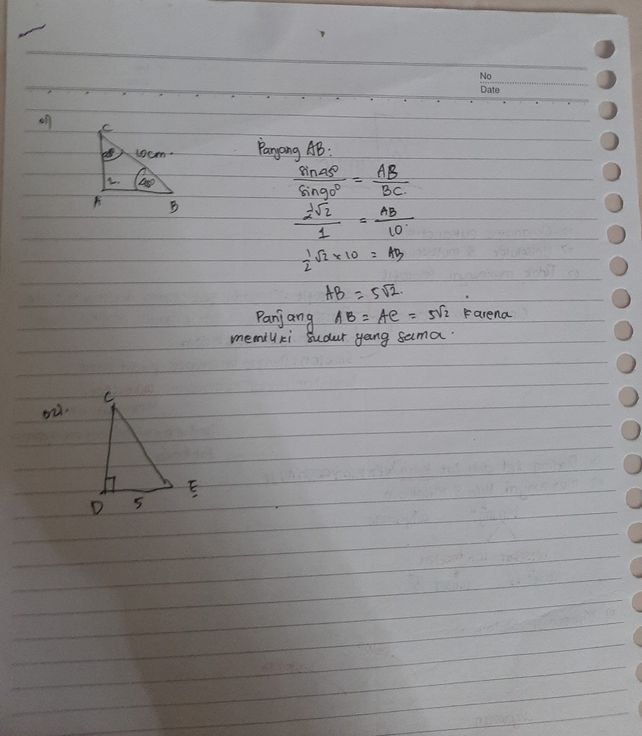 No
Date
01)
C
10cm.
A
B
Panjang AB:
sin45° = AB
sin90° BC.
½√2 = AB
1 10
½√2 × 10 = AB
AB = 5√2.
Panjang AB = AC = 5√2 karena
memiliki sudut yang sama.
02).
C
D
5
E